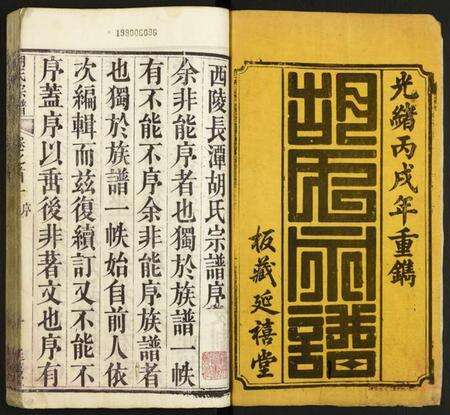 光緒丙戌年重鐫
胡氏宗譜
板藏延禧堂
199006096
西陵長潭胡氏宗譜序
余非能序者也獨於族譜一帙
有不能不序余非能序族譜者
也獨於族譜一帙始自前人依
次編輯而茲復續訂又不能不
序蓋序以畱後非著文也序有
胡氏宗譜
序